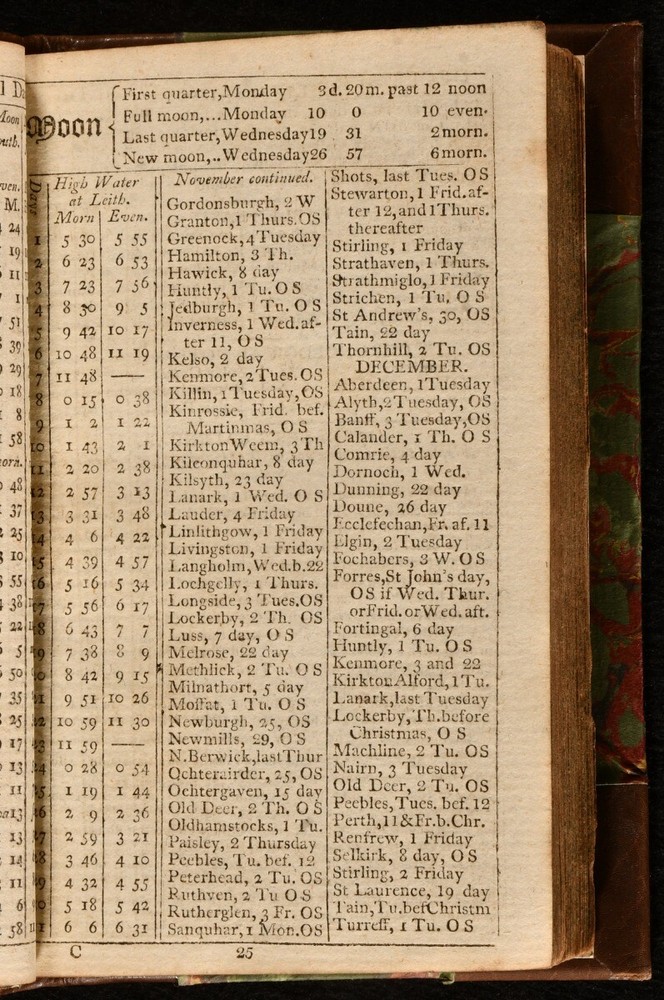 Moon
First quarter, Monday 3d. 20m. past 12 noon
Full moon,...Monday 10 0 10 even.
Last quarter, Wednesday 19 31 2 morn.
New moon,.. Wednesday 26 57 6 morn.
Days
High Water
at Leith.
Morn Even.
1 5 30 5 55
2 6 23 6 53
3 7 23 7 56
4 8 30 9 5
5 9 42 10 17
6 10 48 11 19
7 11 48 —
8 0 15 0 38
9 1 2 1 22
10 1 43 2 1
11 2 20 2 38
12 2 57 3 13
13 3 31 3 48
14 4 6 4 22
15 4 39 4 57
16 5 16 5 34
17 5 56 6 17
18 6 43 7 7
19 7 38 8 9
20 8 42 9 15
21 9 51 10 26
22 10 59 11 30
23 11 59 —
24 0 28 0 54
25 1 19 1 44
26 2 9 2 36
27 2 59 3 21
28 3 46 4 10
29 4 32 4 55
30 5 18 5 42
31 6 6 6 31
November continued.
Gordonsburgh, 2 W
Granton, 1 Thurs. OS
Greenock, 4 Tuesday
Hamilton, 3 Th.
Hawick, 8 day
Huntly, 1 Tu. O S
Jedburgh, 1 Tu. O S
Inverness, 1 Wed. af-
ter 11, O S
Kelso, 2 day
Kenmore, 2 Tues. OS
Killin, 1 Tuesday, OS
Kinrossie, Frid. bef.
Martinmas, O S
Kirkton Weem, 3 Th
Kilconquhar, 8 day
Kilsyth, 23 day
Lanark, 1 Wed. O S
Lauder, 4 Friday
Linlithgow, 1 Friday
Livingston, 1 Friday
Langholm, Wed. b. 22
Lochgelly, 1 Thurs.
Longside, 3 Tues. OS
Lockerby, 2 Th. OS
Luss, 7 day, O S
Melrose, 22 day
Methlick, 2 Tu. O S
Milnathort, 5 day
Moffat, 1 Tu. O S
Newburgh, 25, OS
Newmills, 29, O S
N. Berwick, last Thur
Ochterairder, 25, OS
Ochtergaven, 15 day
Old Deer, 2 Th. O S
Oldhamstocks, 1 Tu.
Paisley, 2 Thursday
Peebles, Tu. bef. 12
Peterhead, 2 Tu. OS
Ruthven, 2 Tu O S
Rutherglen, 3 Fr. OS
Sanquhar, 1 Mon. OS
Shots, last Tues. O S
Stewarton, 1 Frid. af-
ter 12, and 1 Thurs.
thereafter
Stirling, 1 Friday
Strathaven, 1 Thurs.
Strathmiglo, 1 Friday
Strichen, 1 Tu. O S
St Andrew's, 30, OS
Tain, 22 day
Thornhill, 2 Tu. OS
DECEMBER.
Aberdeen, 1 Tuesday
Alyth, 2 Tuesday, OS
Banff, 3 Tuesday, OS
Calander, 1 Th. O S
Comrie, 4 day
Dornoch, 1 Wed.
Dunning, 22 day
Doune, 26 day
Ecclefechan, Fr. af. 11
Elgin, 2 Tuesday
Fochabers, 3 W. O S
Forres, St John's day,
OS if Wed. Thur.
or Frid. or Wed. aft.
Fortingal, 6 day
Huntly, 1 Tu. O S
Kenmore, 3 and 22
Kirkton Alford, 1 Tu.
Lanark, last Tuesday
Lockerby, Th. before
Christmas, O S
Machline, 2 Tu. OS
Nairn, 3 Tuesday
Old Deer, 2 Tu. OS
Peebles, Tues. bef. 12
Perth, 11 & Fr. b. Chr.
Renfrew, 1 Friday
Selkirk, 8 day, O S
Stirling, 2 Friday
St Laurence, 19 day
Tain, Tu. bef Christm
Turreff, 1 Tu. O S
C 25